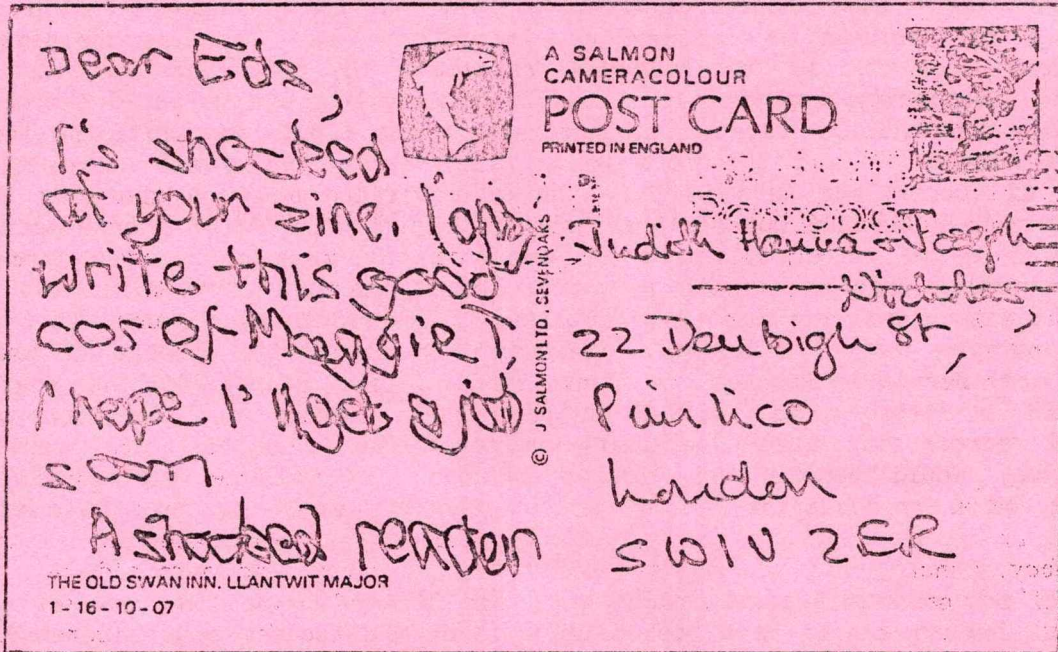 Dear Eds,
I's shocked
at your zine. I only
write this good
cos of Maggie T.
I hope I'll get a job
soon
A shocked reader
THE OLD SWAN INN. LLANTWIT MAJOR
1-16-10-07
A SALMON
CAMERACOLOUR
POST CARD
PRINTED IN ENGLAND
© J SALMON LTD, SEVENOAKS
Judith Hanna & Joseph
Nicholas,
22 Denbigh St,
Pimlico
London
SW1V 2ER